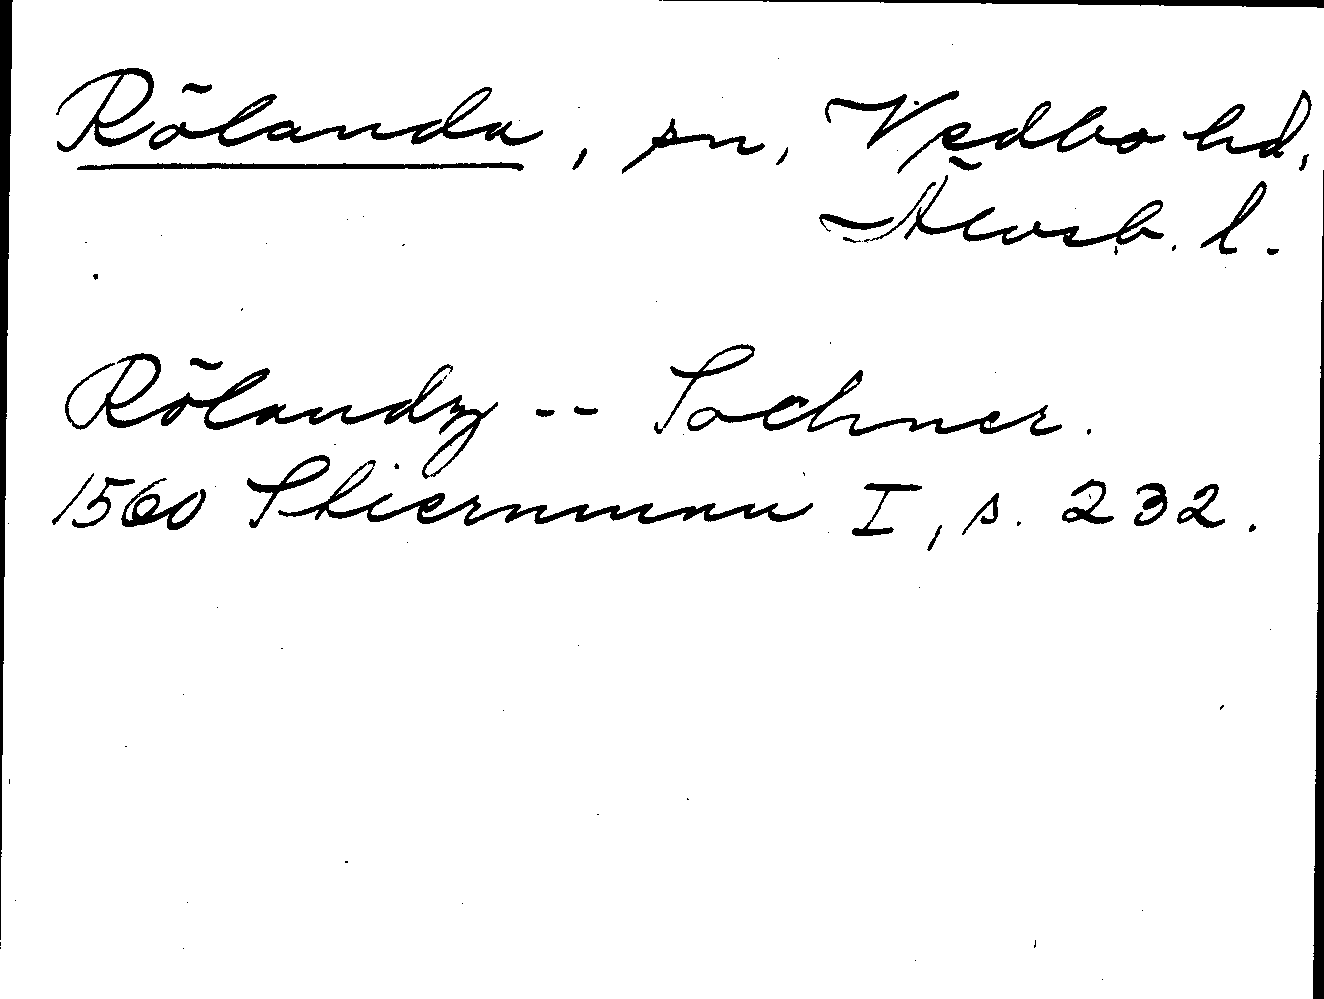 Rölanda, sn, Vedbo hd,
Älvsb. l.
Rölandz -- Sochner.
1560 Stiernman I, s. 232.